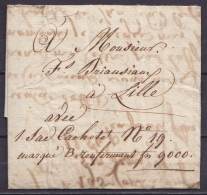 A Monsieur
Fs Briansiaux
à Lille
avec
1 Sac Cacheté No 19.
marqué B renfermant fs 9000.